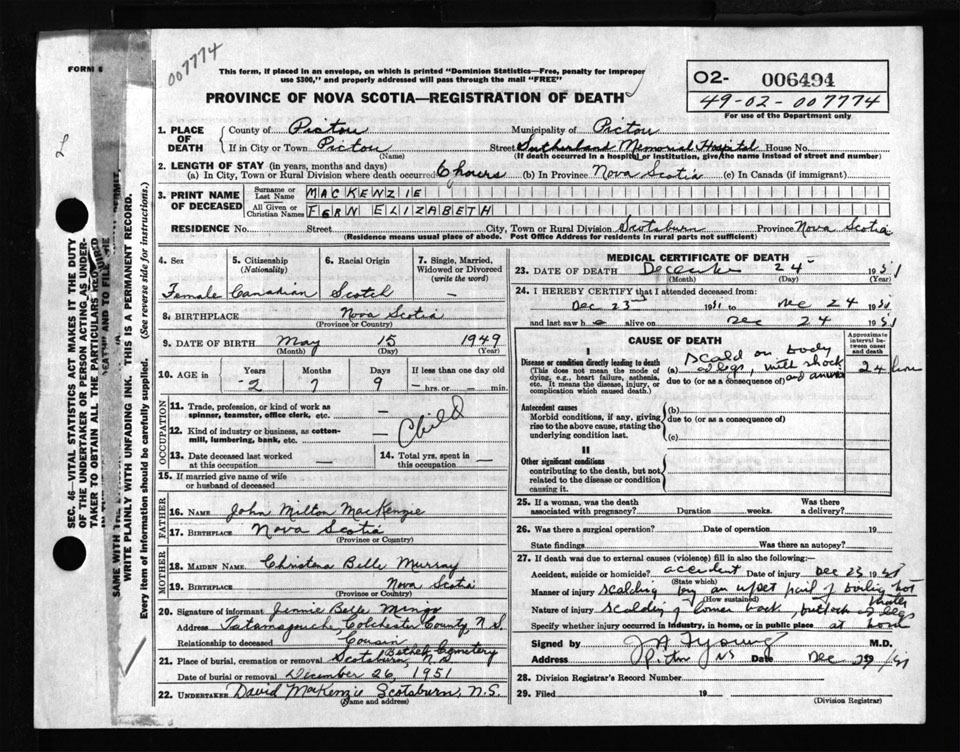 007774
FORM
This form, if placed in an envelope, on which is printed "Dominion Statistics—Free, penalty for improper
use $300," and properly addressed will pass through the mail "FREE"
PROVINCE OF NOVA SCOTIA—REGISTRATION OF DEATH
O2- 006494
49-02-007774
For use of the Department only
1. PLACE OF DEATH
County of Pictou Municipality of Pictou
If in City or Town Pictou (Name) Street Sutherland Memorial Hospital House No.
(If death occurred in a hospital or institution, give the name instead of street and number)
2. LENGTH OF STAY (in years, months and days)
(a) In City, Town or Rural Division where death occurred 6 hours (b) In Province Nova Scotia (c) In Canada (if immigrant)
3. PRINT NAME OF DECEASED
Surname or Last Name MACKENZIE
All Given or Christian Names FERN ELIZABETH
RESIDENCE No. Street City, Town or Rural Division Scotsburn Province Nova Scotia
(Residence means usual place of abode. Post Office Address for residents in rural parts not sufficient)
4. Sex 5. Citizenship (Nationality) 6. Racial Origin 7. Single, Married, Widowed or Divorced (write the word)
Female Canadian Scotch —
8. BIRTHPLACE Nova Scotia
(Province or Country)
9. DATE OF BIRTH May 15 1949
(Month) (Day) (Year)
10. AGE in Years Months Days If less than one day old
2 7 9 hrs. or min.
OCCUPATION
11. Trade, profession, or kind of work as spinner, teamster, office clerk, etc. —
12. Kind of industry or business, as cotton-mill, lumbering, bank, etc. — Child
13. Date deceased last worked at this occupation — 14. Total yrs. spent in this occupation —
15. If married give name of wife or husband of deceased
FATHER
16. NAME John Milton MacKenzie
17. BIRTHPLACE Nova Scotia
(Province or Country)
MOTHER
18. MAIDEN NAME Christena Belle Murray
19. BIRTHPLACE Nova Scotia
(Province or Country)
20. Signature of informant Jennie Belle Mingo
Address Tatamagouche, Colchester County, N.S.
Relationship to deceased Cousin
Bethel Cemetery
21. Place of burial, cremation or removal Scotsburn, N.S.
Date of burial or removal December 26, 1951
22. UNDERTAKER David MacKenzie Scotsburn, N.S.
(Name and address)
MEDICAL CERTIFICATE OF DEATH
23. DATE OF DEATH December 24 1951
(Month) (Day)
24. I HEREBY CERTIFY that I attended deceased from:
Dec 23 1951 to Dec 24 1951
and last saw h alive on Dec 24 1951
CAUSE OF DEATH
Approximate interval between onset and death
I
Disease or condition directly leading to death
(This does not mean the mode of dying, e.g., heart failure, asthenia, etc. It means the disease, injury, or complication which caused death.)
(a) Scald on body
legs, with shock
due to (or as consequence of) and
24 hrs
Antecedent causes
Morbid conditions, if any, giving rise to the above cause, stating the underlying condition last.
(b)
due to (or as consequence of)
(c)
II
Other significant conditions
contributing to the death, but not related to the disease or condition causing it.
25. If a woman, was the death associated with pregnancy? Duration weeks. Was there a delivery?
26. Was there a surgical operation? Date of operation 19
State findings Was there an autopsy?
27. If death was due to external causes (violence) fill in also the following:
Accident, suicide or homicide? accident Date of injury Dec 23 1951
(State which)
Manner of injury Scalding by an upset pail of boiling hot water
(How sustained)
Nature of injury Scalding of lower back, buttock & legs
Specify whether injury occurred in industry, in home, or in public place at home
Signed by J A F Young M.D.
Address Pictou NS Date Dec 29/51
28. Division Registrar's Record Number
29. Filed 19
(Division Registrar)
SEC. 46—VITAL STATISTICS ACT MAKES IT THE DUTY
OF THE UNDERTAKER OR PERSON ACTING AS UNDER-
TAKER TO OBTAIN ALL THE PARTICULARS REQUIRED
SAME WITH
WRITE PLAINLY WITH UNFADING INK. THIS IS A PERMANENT RECORD.
Every item of information should be carefully supplied. (See reverse side for instructions.)